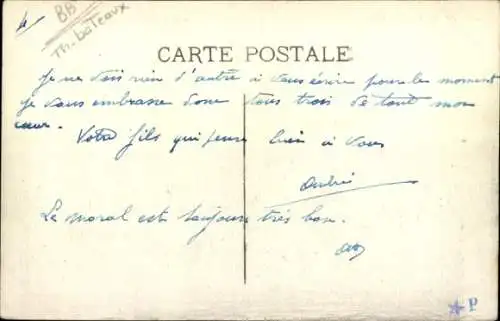 4
BB
Th. bateaux
CARTE POSTALE
Je ne vois rien d'autre à vous écrire pour le moment
je vous embrasse donc tous trois de tout mon
cœur.
Votre fils qui pense bien à vous
Le moral est toujours très bon.
P